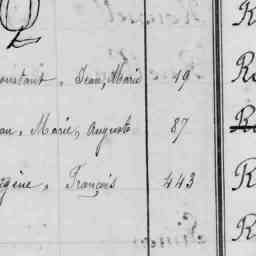 Q R
onstant, Jean, Marie 19 R
an, Marie, Auguste 87 R
gène, François 443 R
R